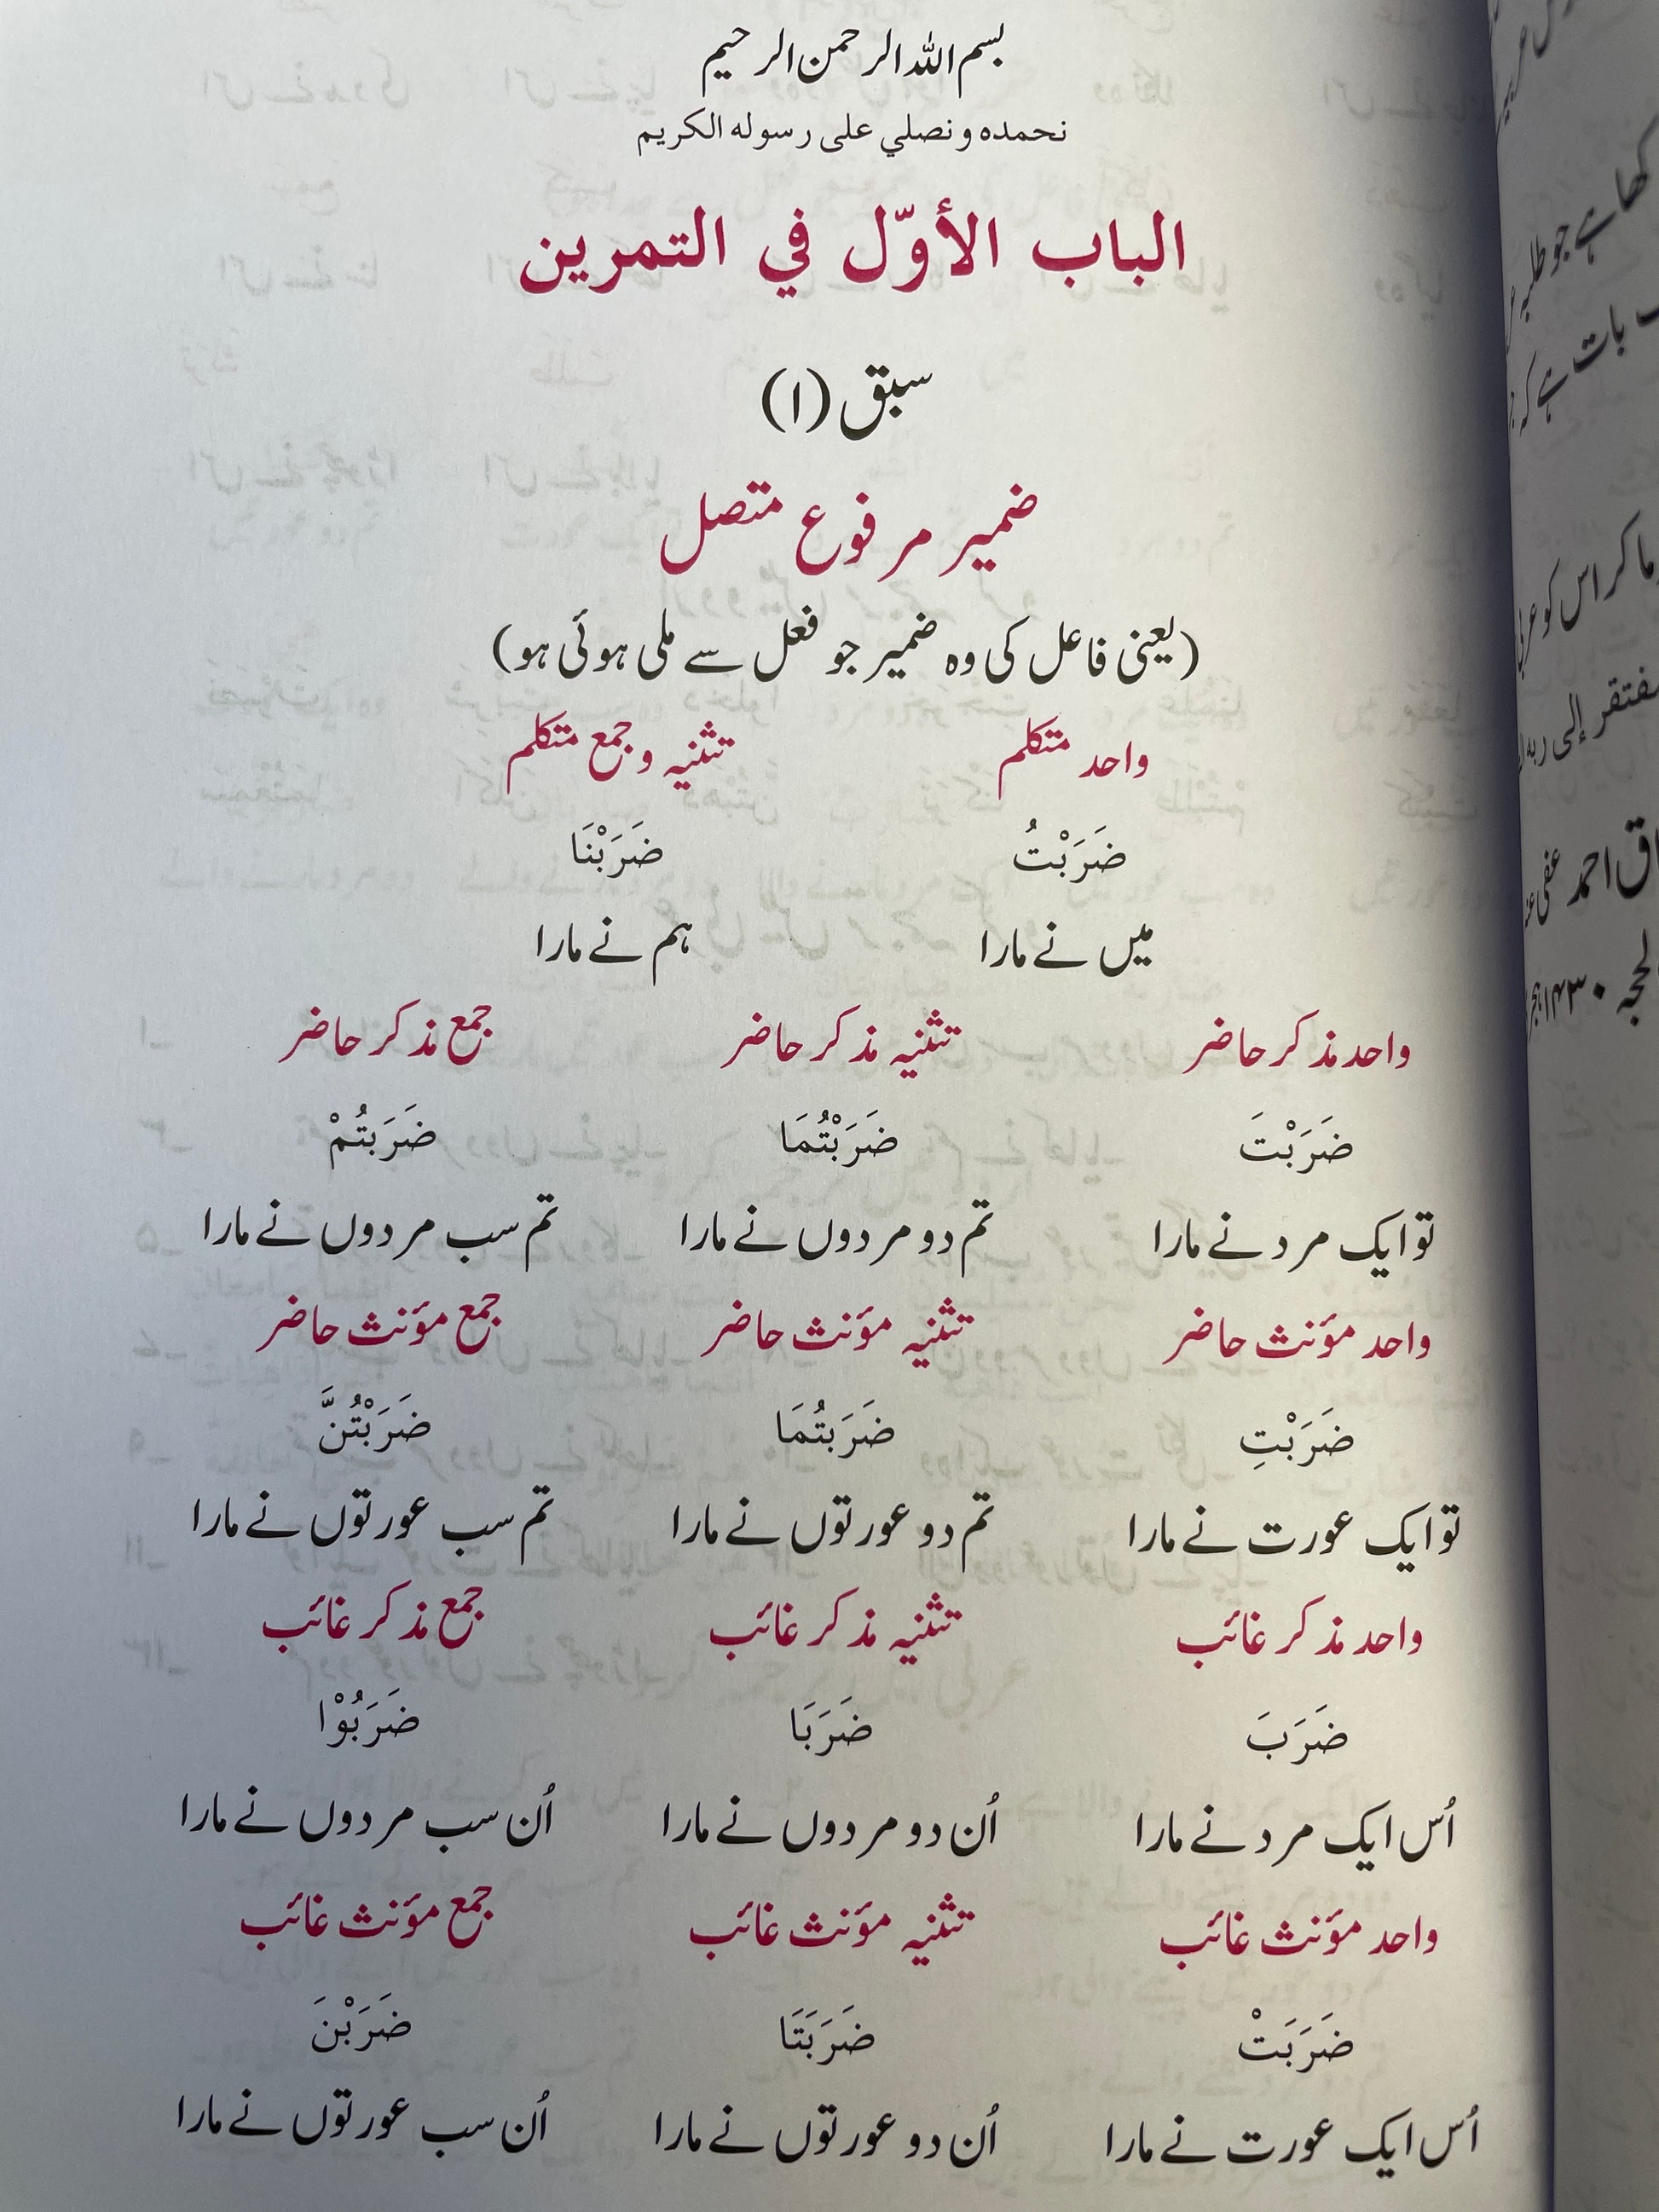 بسم الله الرحمن الرحيم
نحمده ونصلي على رسوله الكريم
الباب الأوّل في التمرين
سبق (۱)
ضمیر مرفوع متصل
(یعنی فاعل کی وہ ضمیر جو فعل سے ملی ہوئی ہو)
واحد متکلم تثنیہ و جمع متکلم
ضَرَبْتُ ضَرَبْنَا
میں نے مارا ہم نے مارا
واحد مذکر حاضر تثنیہ مذکر حاضر جمع مذکر حاضر
ضَرَبْتَ ضَرَبْتُمَا ضَرَبتُمْ
تو ایک مرد نے مارا تم دو مردوں نے مارا تم سب مردوں نے مارا
واحد مؤنث حاضر تثنیہ مؤنث حاضر جمع مؤنث حاضر
ضَرَبْتِ ضَرَبتُمَا ضَرَبْتُنَّ
تو ایک عورت نے مارا تم دو عورتوں نے مارا تم سب عورتوں نے مارا
واحد مذکر غائب تثنیہ مذکر غائب جمع مذکر غائب
ضَرَبَ ضَرَبَا ضَرَبُوْا
اُس ایک مرد نے مارا اُن دو مردوں نے مارا اُن سب مردوں نے مارا
واحد مؤنث غائب تثنیہ مؤنث غائب جمع مؤنث غائب
ضَرَبَتْ ضَرَبَتَا ضَرَبْنَ
اُس ایک عورت نے مارا اُن دو عورتوں نے مارا اُن سب عورتوں نے مارا
کھا ہے جو طلبہ
بات ہے کہ
کر اس کو
إلى ربه
احمد عفی
۱۴۳۰